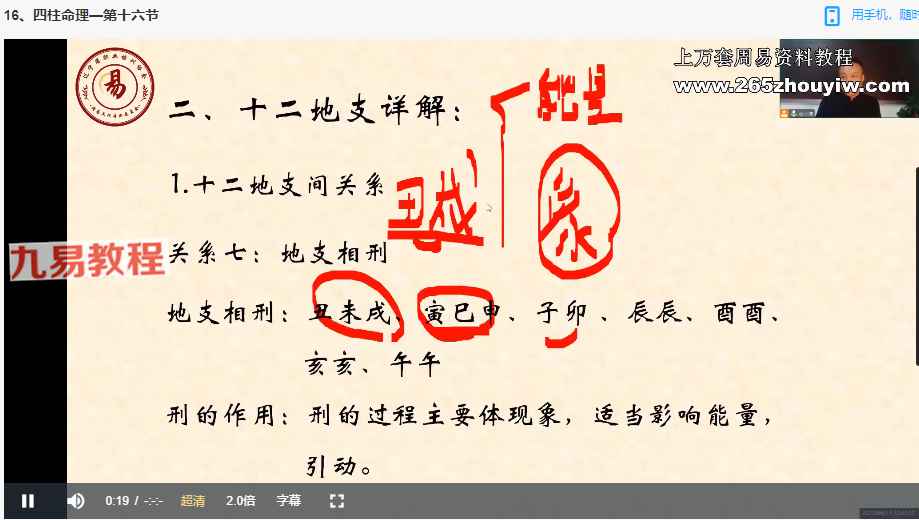 16、四柱命理—第十六节
用手机，随时
易
上万套周易资料教程
www.265zhouyiw.com
二、十二地支详解：
能量
1.十二地支间关系
丑戌
象
九易教程
关系七：地支相刑
地支相刑：丑未戌、寅巳申、子卯、辰辰、酉酉、
亥亥、午午
刑的作用：刑的过程主要体现象，适当影响能量，
引动。
0:19 / -:-:-
超清
2.0倍
字幕